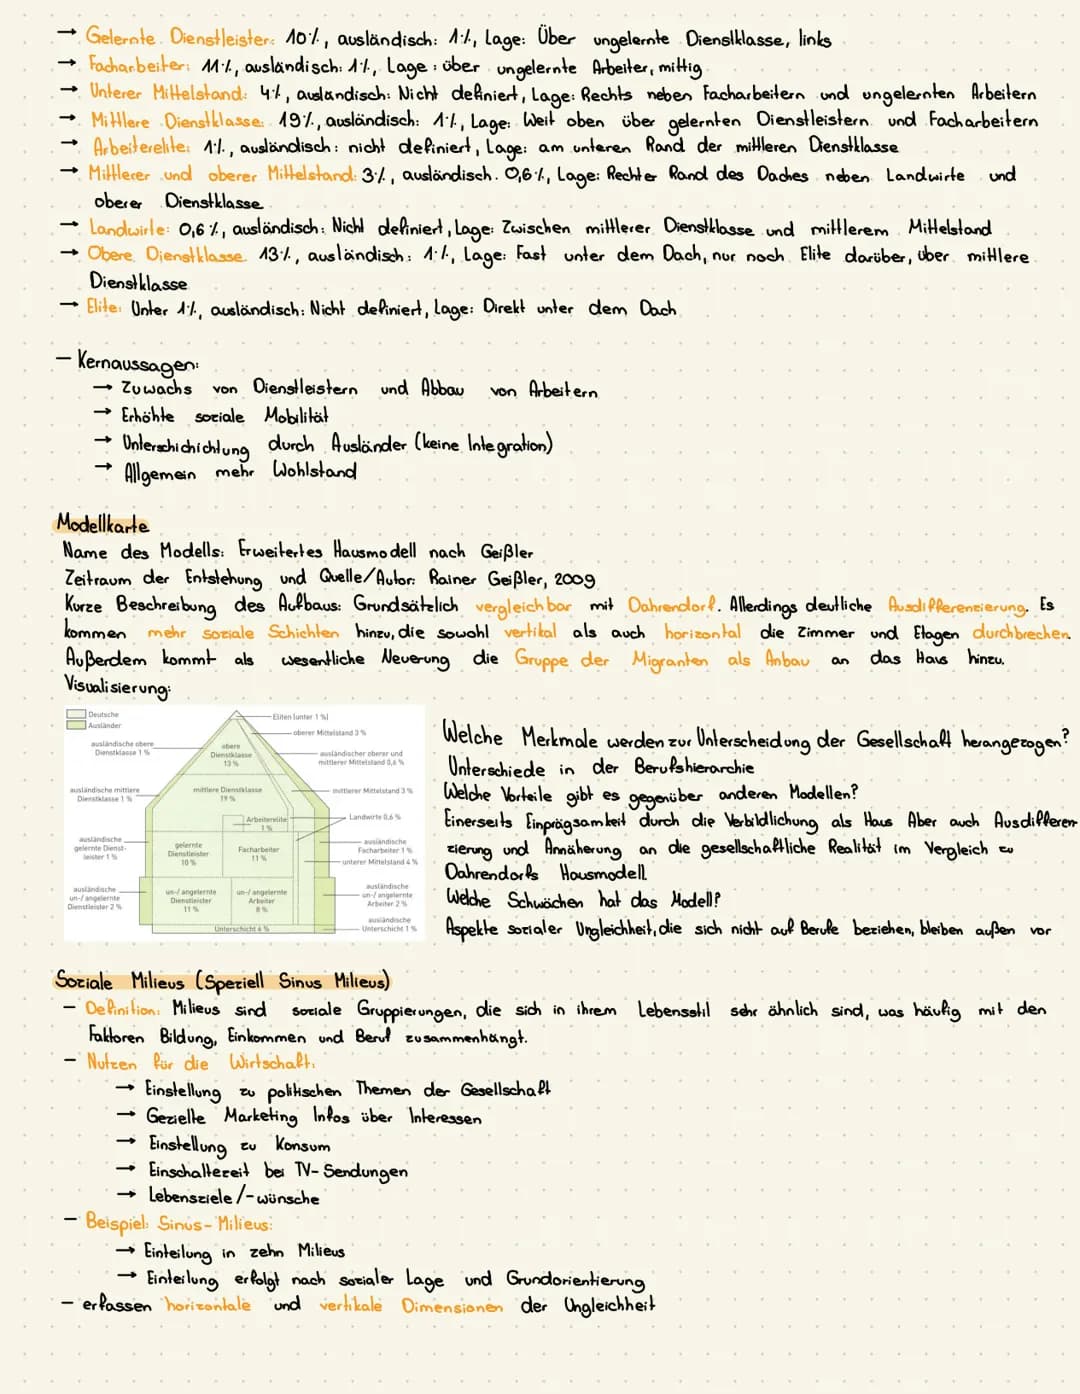 → Gelernte Dienstleister: 10%, ausländisch: 1%, Lage: Über ungelernte Dienstklasse, links
→ Facharbeiter: 11%, ausländisch: 1%, Lage: über ungelernte Arbeiter, mittig
→ Unterer Mittelstand: 4%, ausländisch: Nicht definiert, Lage: Rechts neben Facharbeitern und ungelernten Arbeitern
→ Mittlere Dienstklasse: 19%, ausländisch: 1%, Lage: Weit oben über gelernten Dienstleistern und Facharbeitern
→ Arbeiterelite: 1%, ausländisch: nicht definiert, Lage: am unteren Rand der mittleren Dienstklasse
→ Mittlerer und oberer Mittelstand: 3%, ausländisch. 0,6%, Lage: Rechter Rand des Daches neben Landwirte und
oberer Dienstklasse
→ Landwirte: 0,6%, ausländisch: Nicht definiert, Lage: Zwischen mittlerer Dienstklasse und mittlerem Mittelstand
→ Obere Dienstklasse 13%, ausländisch: 1%, Lage: Fast unter dem Dach, nur noch Elite darüber, über mittlere
Dienstklasse
→ Elite: Unter 1%, ausländisch: Nicht definiert, Lage: Direkt unter dem Dach
– Kernaussagen:
→ Zuwachs von Dienstleistern und Abbau von Arbeitern
→ Erhöhte soziale Mobilität
→ Unterschichichtung durch Ausländer (keine Integration)
→ Allgemein mehr Wohlstand
Modellkarte
Name des Modells: Erweitertes Hausmodell nach Geißler
Zeitraum der Entstehung und Quelle/Autor: Rainer Geißler, 2009
Kurze Beschreibung des Aufbaus: Grundsätzlich vergleichbar mit Dahrendorf. Allerdings deutliche Ausdifferenzierung. Es
kommen mehr soziale Schichten hinzu, die sowohl vertikal als auch horizontal die Zimmer und Etagen durchbrechen.
Außerdem kommt als wesentliche Neuerung die Gruppe der Migranten als Anbau an das Haus hinzu.
Visualisierung:
Deutsche
Ausländer
Eliten (unter 1 %)
oberer Mittelstand 3 %
ausländische obere
Dienstklasse 1 %
obere
Dienstklasse
13 %
ausländischer oberer und
mittlerer Mittelstand 0,6 %
ausländische mittlere
Dienstklasse 1 %
mittlere Dienstklasse
19 %
mittlerer Mittelstand 3 %
Arbeiterelite
1 %
Landwirte 0,6 %
ausländische
gelernte Dienst-
leister 1 %
gelernte
Dienstleister
10 %
Facharbeiter
11 %
ausländische
Facharbeiter 1 %
unterer Mittelstand 4 %
ausländische
un-/ angelernte
Dienstleister 2 %
un-/ angelernte
Dienstleister
11 %
un-/ angelernte
Arbeiter
8 %
ausländische
un-/ angelernte
Arbeiter 2 %
Unterschicht 6 %
ausländische
Unterschicht 1 %
Welche Merkmale werden zur Unterscheidung der Gesellschaft herangezogen?
Unterschiede in der Berufshierarchie
Welche Vorteile gibt es gegenüber anderen Modellen?
Einerseits Einprägsamkeit durch die Verbildlichung als Haus Aber auch Ausdifferen
zierung und Annäherung an die gesellschaftliche Realität im Vergleich zu
Dahrendorfs Hausmodell
Welche Schwächen hat das Modell?
Aspekte sozialer Ungleichheit, die sich nicht auf Berufe beziehen, bleiben außen vor
Soziale Milieus (Speziell Sinus Milieus)
– Definition: Milieus sind soziale Gruppierungen, die sich in ihrem Lebensstil sehr ähnlich sind, was häufig mit den
Faktoren Bildung, Einkommen und Beruf zusammenhängt.
– Nutzen für die Wirtschaft:
→ Einstellung zu politischen Themen der Gesellschaft
→ Gezielte Marketing Infos über Interessen
→ Einstellung zu Konsum
→ Einschaltezeit bei TV-Sendungen
→ Lebensziele/-wünsche
– Beispiel: Sinus-Milieus:
→ Einteilung in zehn Milieus
→ Einteilung erfolgt nach sozialer Lage und Grundorientierung
– erfassen horizontale und vertikale Dimensionen der Ungleichheit